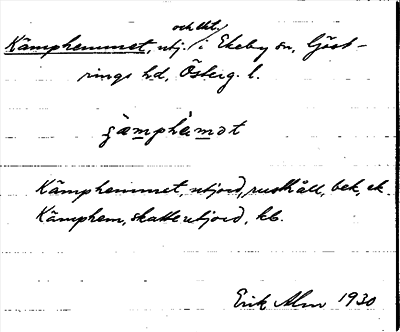 och ekt,
Kämphemmet, utj. i Ekeby sn, Göst-
rings hd, Österg. l.
jämphèmət
Kämphemmet, utjord, rusthåll, bek, ek.
Kämphem, skatteutjord, kb.
Erik Alm 1930